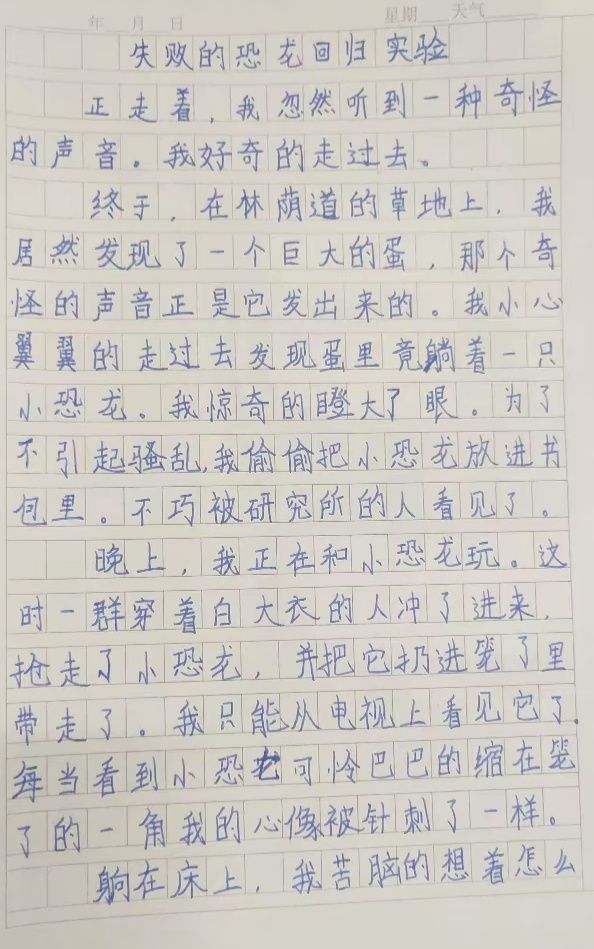 年 月 日 星期 天气
失败的恐龙回归实验
正走着，我忽然听到一种奇怪
的声音。我好奇的走过去。
终于，在林荫道的草地上，我
居然发现了一个巨大的蛋，那个奇
怪的声音正是它发出来的。我小心
翼翼的走过去发现蛋里竟躺着一只
小恐龙。我惊奇的瞪大了眼。为了
不引起骚乱，我偷偷把小恐龙放进书
包里。不巧被研究所的人看见了。
晚上，我正在和小恐龙玩。这
时一群穿着白大衣的人冲了进来，
抢走了小恐龙，并把它扔进笼了里
带走了。我只能从电视上看见它了。
每当看到小恐龙可怜巴巴的缩在笼
了的一角我的心像被针刺了一样。
躺在床上，我苦脑的想着怎么